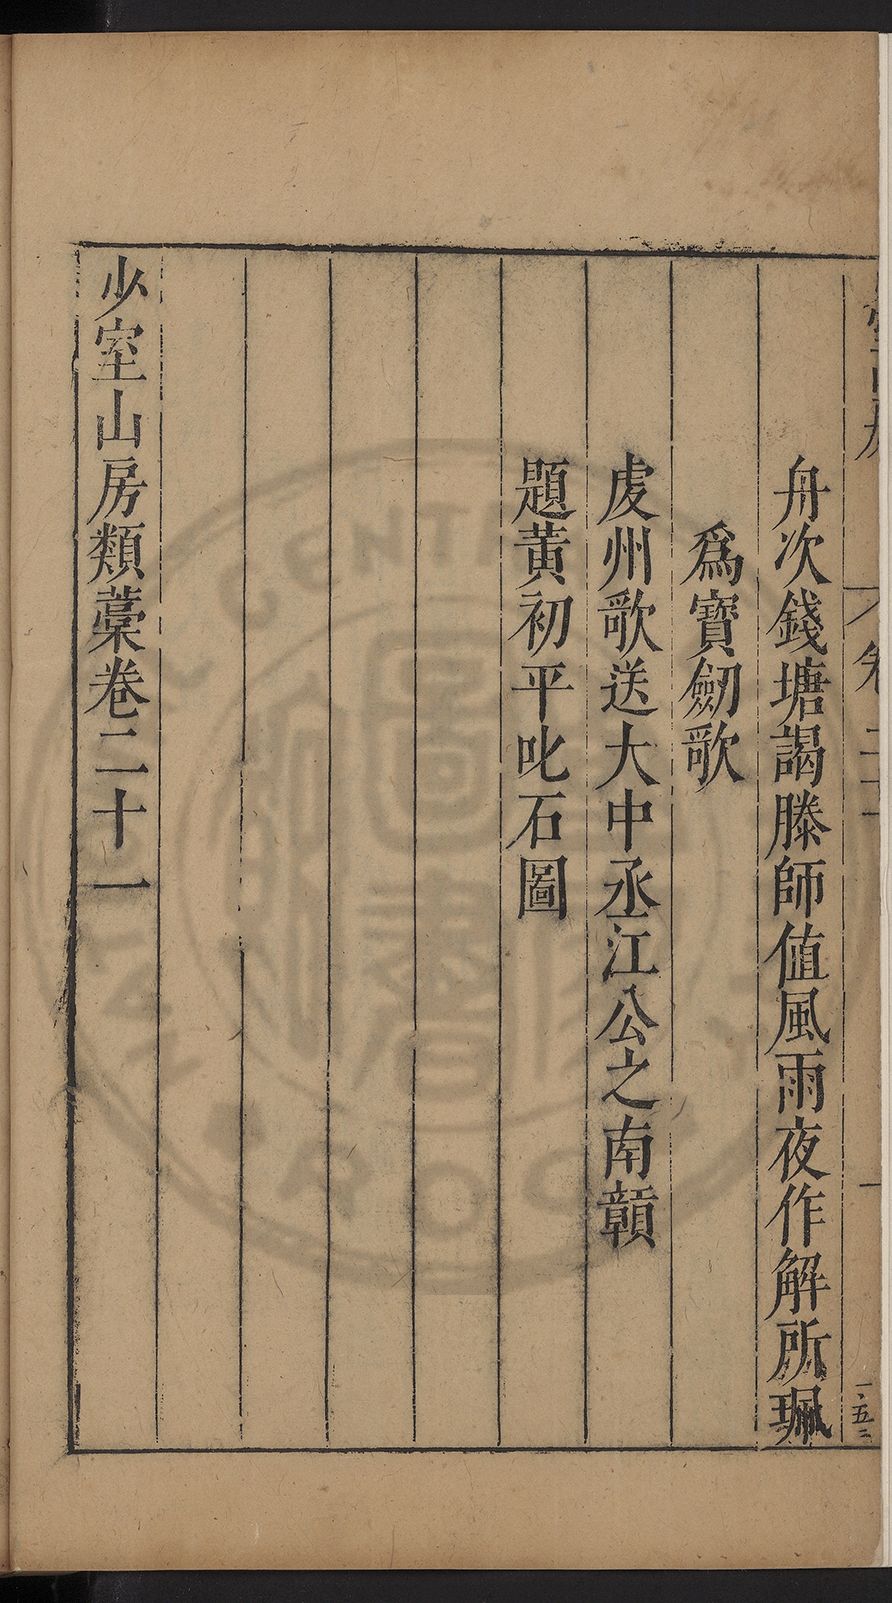 舟次錢塘謁滕師值風雨夜作解所珮
爲寶劒歌
䖏州歌送大中丞江公之南贑
題黃初平叱石圖
少室山房類藁卷二十一